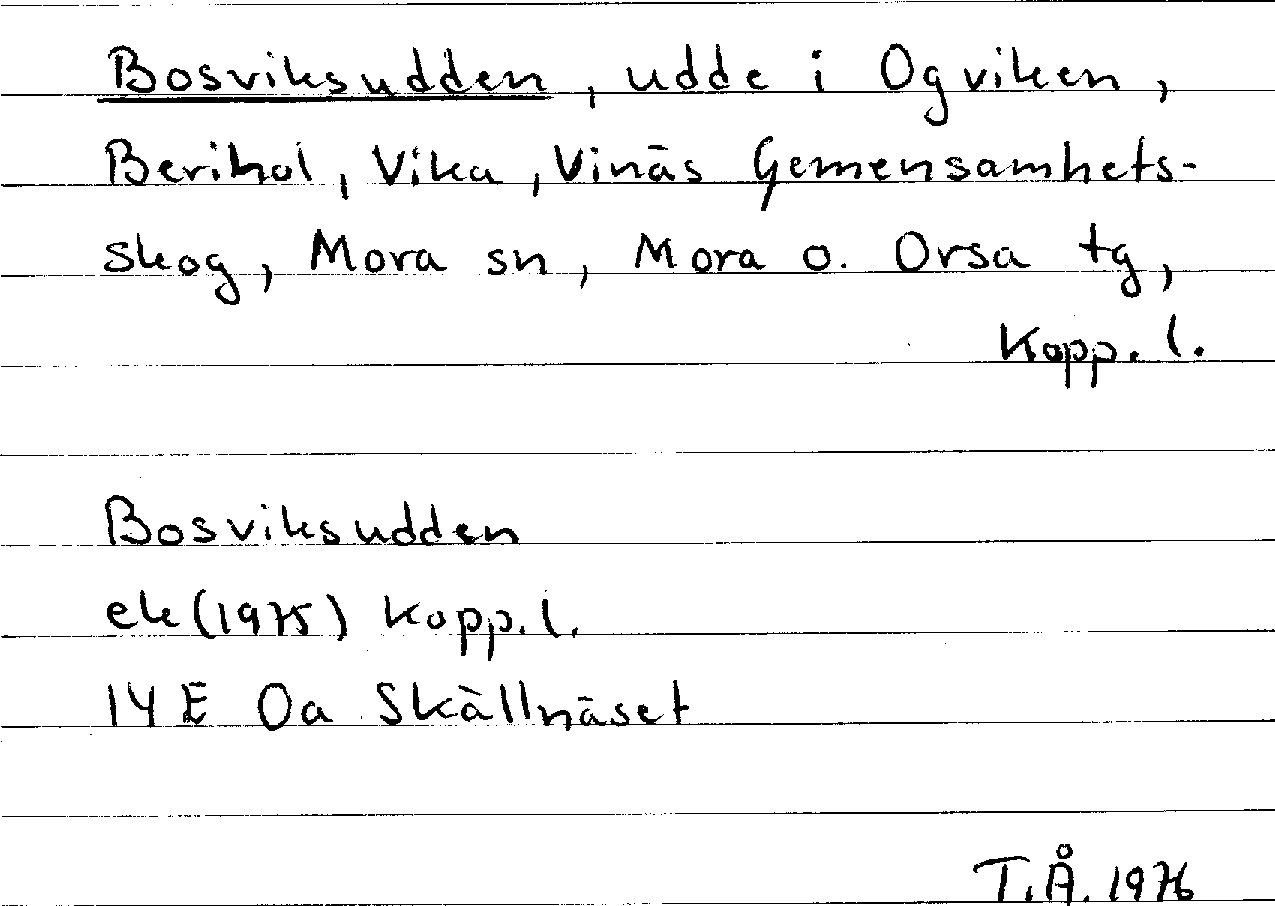 Bosviksudden, udde i Ogviken,
Berikol, Vika, Vinäs Gemensamhets-
skog, Mora sn, Mora o. Orsa tg,
Kopp. l.
Bosviksudden
ek (1975) Kopp. l.
14 E 0a Skällnäset
T.Å. 1976